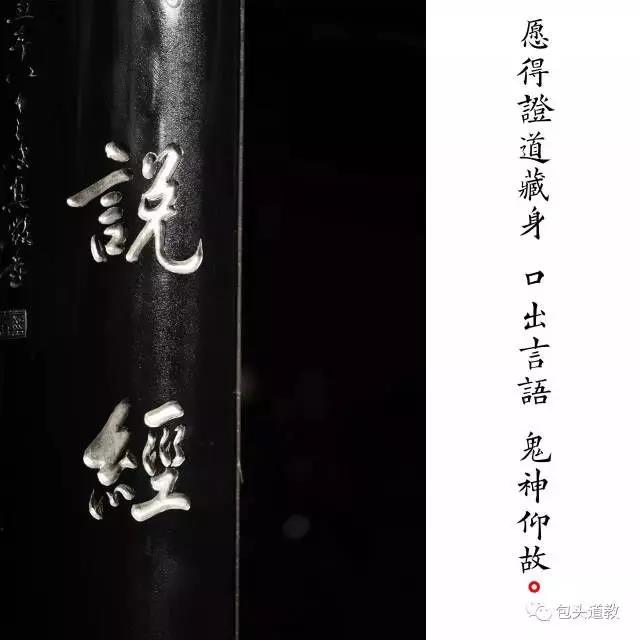 愿得證道藏身 口出言語 鬼神仰故
說經
包头道教